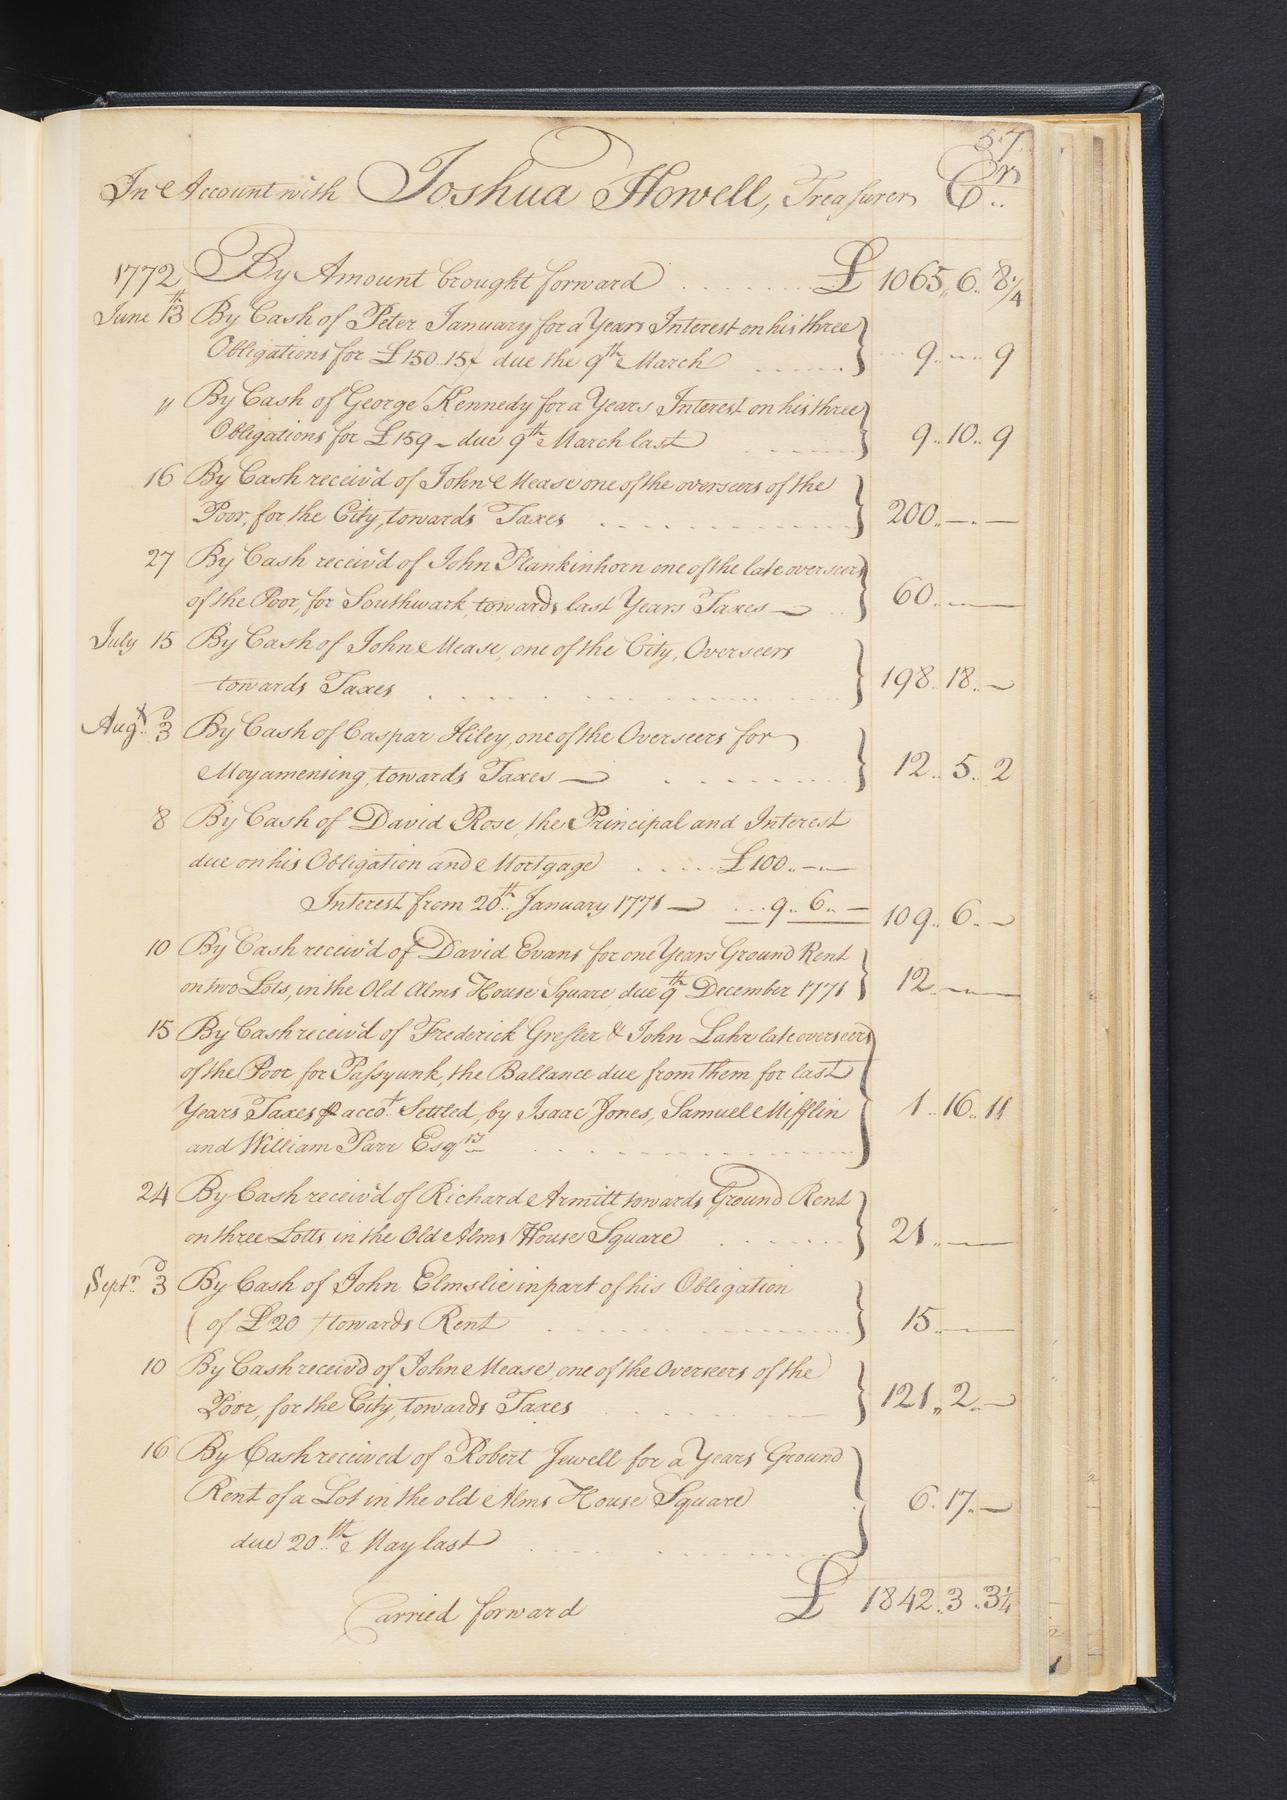 57
In Account with Joshua Howell, Treasurer Cr..
1772 By Amount brought forward . . . . . . . . £ 1065,, 6.. 8 1/4
June 13th By Cash of Peter January for a Years Interest on his three
Obligations for £150..15/ due the 9th March . . . . . . 9..-..9
" By Cash of George Kennedy for a Years Interest on his three
Obligations for £159 - due 9th March last . . . . . . 9..10..9
16 By Cash receiv'd of John Mease one of the overseers of the
Poor, for the City, towards Taxes . . . . . . . . . . 200..-.-
27 By Cash receiv'd of John Plankinhorn one of the late overseers
of the Poor, for Southwark, towards last Years Taxes — . . 60..—
July 15 By Cash of John Mease, one of the City, Overseers
towards Taxes . . . . . . . . 198..18..-
Augt. 3d By Cash of Caspar Hiley, one of the Overseers for
Moyamensing, towards Taxes — . . . . . . . 12..5..2
8 By Cash of David Rose, the Principal and Interest
due on his Obligation and Mortgage . . . . . £100..-.-
Interest from 20th.. January 1771 — ...9..6..- 109..6..-
10 By Cash receiv'd of David Evans for one Years Ground Rent
on two Lots, in the Old Alms House Square due 9th December 1771 12..—
15 By Cash receiv'd of Frederick Gresler & John Lahr late overseers
of the Poor, for Passyunk, the Ballance due from them for last
Years Taxes ⅌ accot. Settled, by Isaac Jones, Samuel Mifflin 1..16..11
and William Parr Esqrs . . . . . . . . .
24 By Cash receiv'd of Richard Armitt towards Ground Rent
on three Lotts in the Old Alms House Square . . . . . . 21..—
Septr. 3d By Cash of John Elmslie in part of his Obligation
( of £20 ) towards Rent . . . . . . . . 15..—
10 By Cash receiv'd of John Mease, one of the Overseers of the
Poor, for the City, towards Taxes . . . . . . 121,, 2..-
16 By Cash received of Robert Jewell for a Years Ground
Rent of a Lot in the old Alms House Square 6..17..-
due 20th.. May last . . . . . . . .
Carried forward £ 1842..3..3 1/4